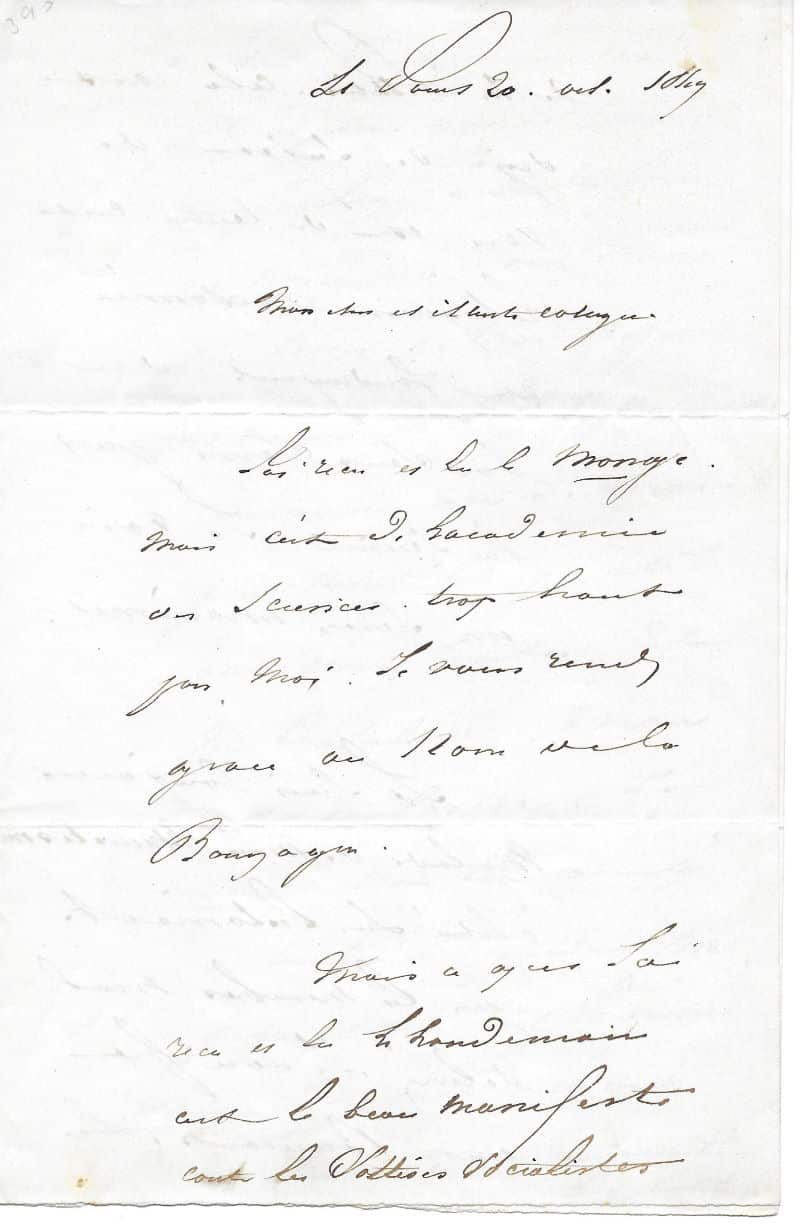 20. oct. 1849
Mon cher et illustre collegue
J'ai recu et lu le Monge.
Mais c'est de l'academie
des Sciences. trop haut
pour Moi. Je vous rends
grace au Nom de la
Bourgogne.
Mais ce que J'ai
recu et lu le lendemain
c'est le beau manifeste
contre les Sottises Socialistes